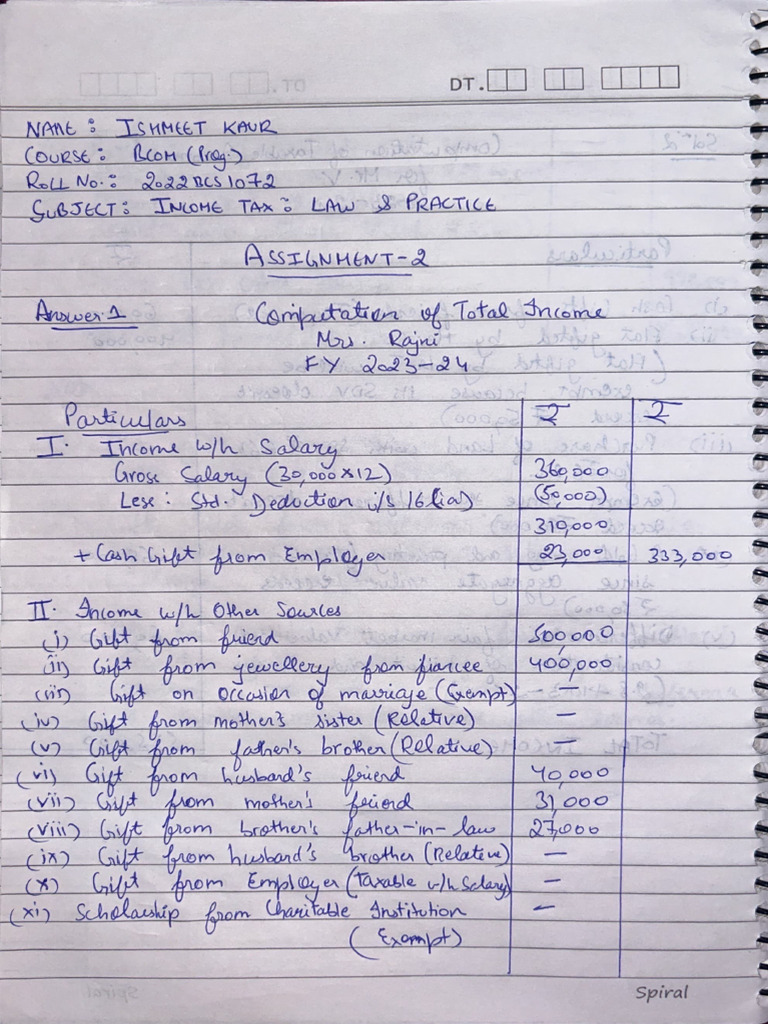 DT.
NAME : ISHMEET KAUR
COURSE : BCOM (Prog.)
ROLL No. : 2022BCS1072
SUBJECT : INCOME TAX : LAW & PRACTICE
ASSIGNMENT-2
Answer.1 Computation of Total Income
Mrs. Rajni
FY 2023-24
Particulars ₹ ₹
I. Income w/h Salary
Gross Salary (30,000×12) 360,000
Less : Std. Deduction u/s 16(ia) (50,000)
310,000
+ Cash Gift from Employer 23,000 333,000
II. Income w/h Other Sources
(i) Gift from friend 500,000
(ii) Gift from jewellery from fiancee 400,000
(iii) Gift on occasion of marriage (Exempt) —
(iv) Gift from mother's sister (Relative) —
(v) Gift from father's brother (Relative) —
(vi) Gift from husband's friend 40,000
(vii) Gift from mother's friend 31,000
(viii) Gift from brother's father-in-law 27,000
(ix) Gift from husband's brother (Relative) —
(x) Gift from Employer (Taxable u/h Salary) —
(xi) Scholarship from Charitable Institution —
(Exempt)
Spiral